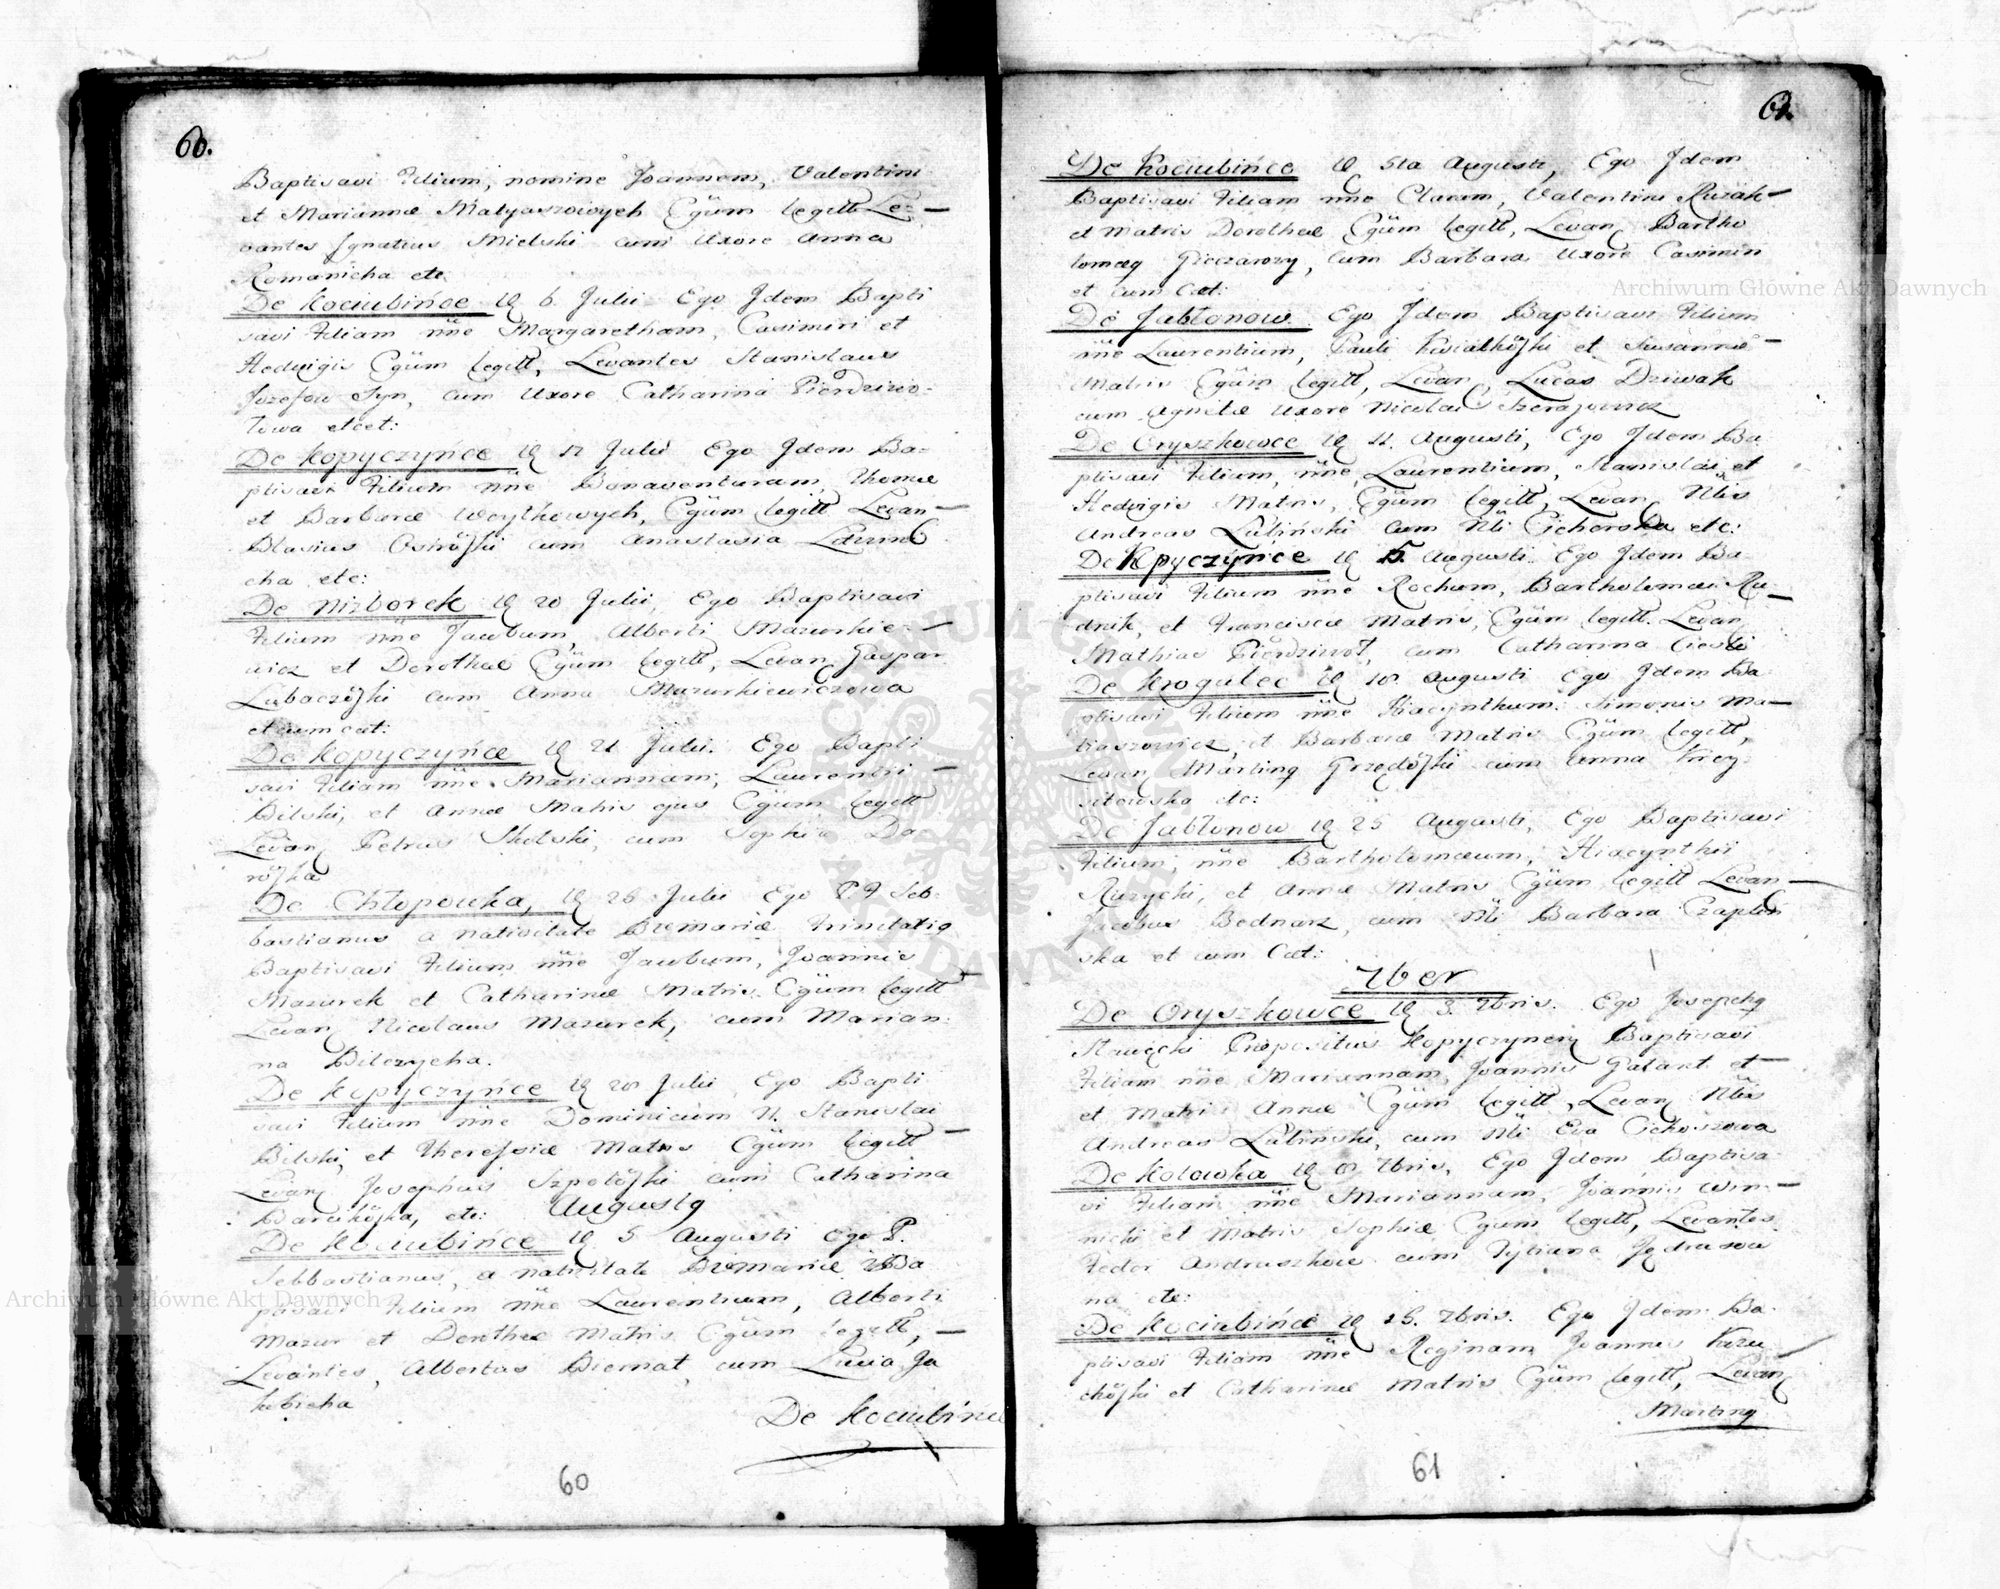 60.
Baptisavi Filium, nomine Joannem, Valentini
et Mariannæ Matyaszowych Cgüm legitt Le-
vantes Ignatius Mielski cum Uxore Anna
Romanicha etc
De Kociubińce 6. Julii Ego Idem Bapti
savi Filiam nñe Margaretham, Casimiri et
Hedvigis Cgüm legitt, Levantes Stanislaus
Jozefow Syn, cum Uxore Catharina Pierdziwo-
towa etcet:
De Kopyczyńce 12 Julii Ego Idem Ba-
ptisavi Filium nñe Bonaventuram, Thomæ
et Barbaræ Woytkowych, Cgüm legitt Levan
Blasius cum Anastasia
cha etc:
De Nizborek 20 Julii, Ego Baptisavi
Filium nñe Jacobum, Alberti Mazurkie-
wicz et Dorotheæ Cgüm legitt, Levan Gaspar
cum Anna Mazurkiewiczowa
et cum cæt:
De Kopyczyńce 21 Julii. Ego Bapti
savi Filiam nñe Mariannam, Laurentii
Bilski, et Annæ Matris ejus Cgüm legitt
Levan Petrus Skolski, cum Sophia Do-
De Chłopowka, 26 Julii Ego P. F Seb-
bastianus a nativitate Trinitatis
Baptisavi Filium nñe Jacobum, Joannis
Mazurek et Catharinæ Matris Cgüm legitt
Levan Nicolaus Mazurek, cum Marian-
na Bilczycha.
De Kopyczyńce Julii, Ego Bapti
savi Filium nñe Dominicum N. Stanislai
Bilski, et Theresiæ Matris Cgüm legitt
Levan Josephus cum Catharina
etc: Augustq
De Kociubińce 5 Augusti Ego P.
Sebbastianus, a nativitate Ba
ptisavi Filium nñe Laurentium, Alberti
Mazur et Dorotheæ Matris Cgüm legitt,
Levantes, Albertus Biernat, cum Lucia Ja
kubicha
De Kociubińce
60
61.
De Kociubińce 5ta Augusti, Ego Idem
Baptisavi Filiam nñe Claram, Valentini Ruzak
et Matris Dorotheæ Cgüm legitt, Levan Bartho
lomæq cum Barbara Uxore Casimiri
et cum Cæt:
De Jabłonow. Ego Idem Baptisavi Filium
nñe Laurentium, Pauli et Susannæ
Matris Cgüm legitt, Levan, Lucas Dziwak
cum Agnete Uxore Nicolai
De Oryszkowce 11. Augusti, Ego Idem Ba
ptisavi Filium, nñe Laurentium, Stanislai et
Hedvigis Matris, Cgüm legitt, Levan Nblis
Andreas Lubiński cum Nbli Cichorska etc:
De Kpyczyńce 15. Augusti. Ego Idem Ba
ptisavi Filium nñe Rochum, Bartholomæi Ru-
dnik, et Franciscæ Matris, Cgüm legitt. Levan
Mathias Pierdziwot, cum Catharina
De Krogulec 18. Augusti Ego Idem Ba
ptisavi Filium nñe Hiacynthum. Simonis Ma-
tiaszowicz, et Barbaræ Matris Cgüm legitt,
Levan Martinq cum Anna Krzy
sztowska etc:
De Jabłonow 25 Augusti, Ego Baptisavi
Filium, nñe Bartholomæum, Hiacynthii
Ruzycki, et Annæ Matris Cgüm legitt Levan
Jacobus Bednarz, cum Nbli Barbara Czaplin
ska et cum Cæt:
7ber
De Oryszkowce 3. 7bris. Ego Josephq
Præpositus Kopyczyneñ Baptisavi
Filiam nñe Mariannam, Joannis Galant et
et Matris Annæ Cgüm legitt, Levan Nblis
Andreas Lubiński, cum Nbli Eva Cichoszowa
De Kotowka 8 7bris, Ego Idem Baptisa-
vi Filiam nñe Mariannam, Joannis Win-
nicki et Matris Sophiæ Cgüm legitt, Levantes
Fedor Andruszkow cum Tytiana
na etc:
De Kociubińce 15. 7bris. Ego Idem Ba-
ptisavi Filiam nñe Reginam Joannis
et Catharinæ Matris Cgüm legitt, Levan
Martinq
61
Archiwum Główne Akt Dawnych
Archiwum Główne Akt Dawnych